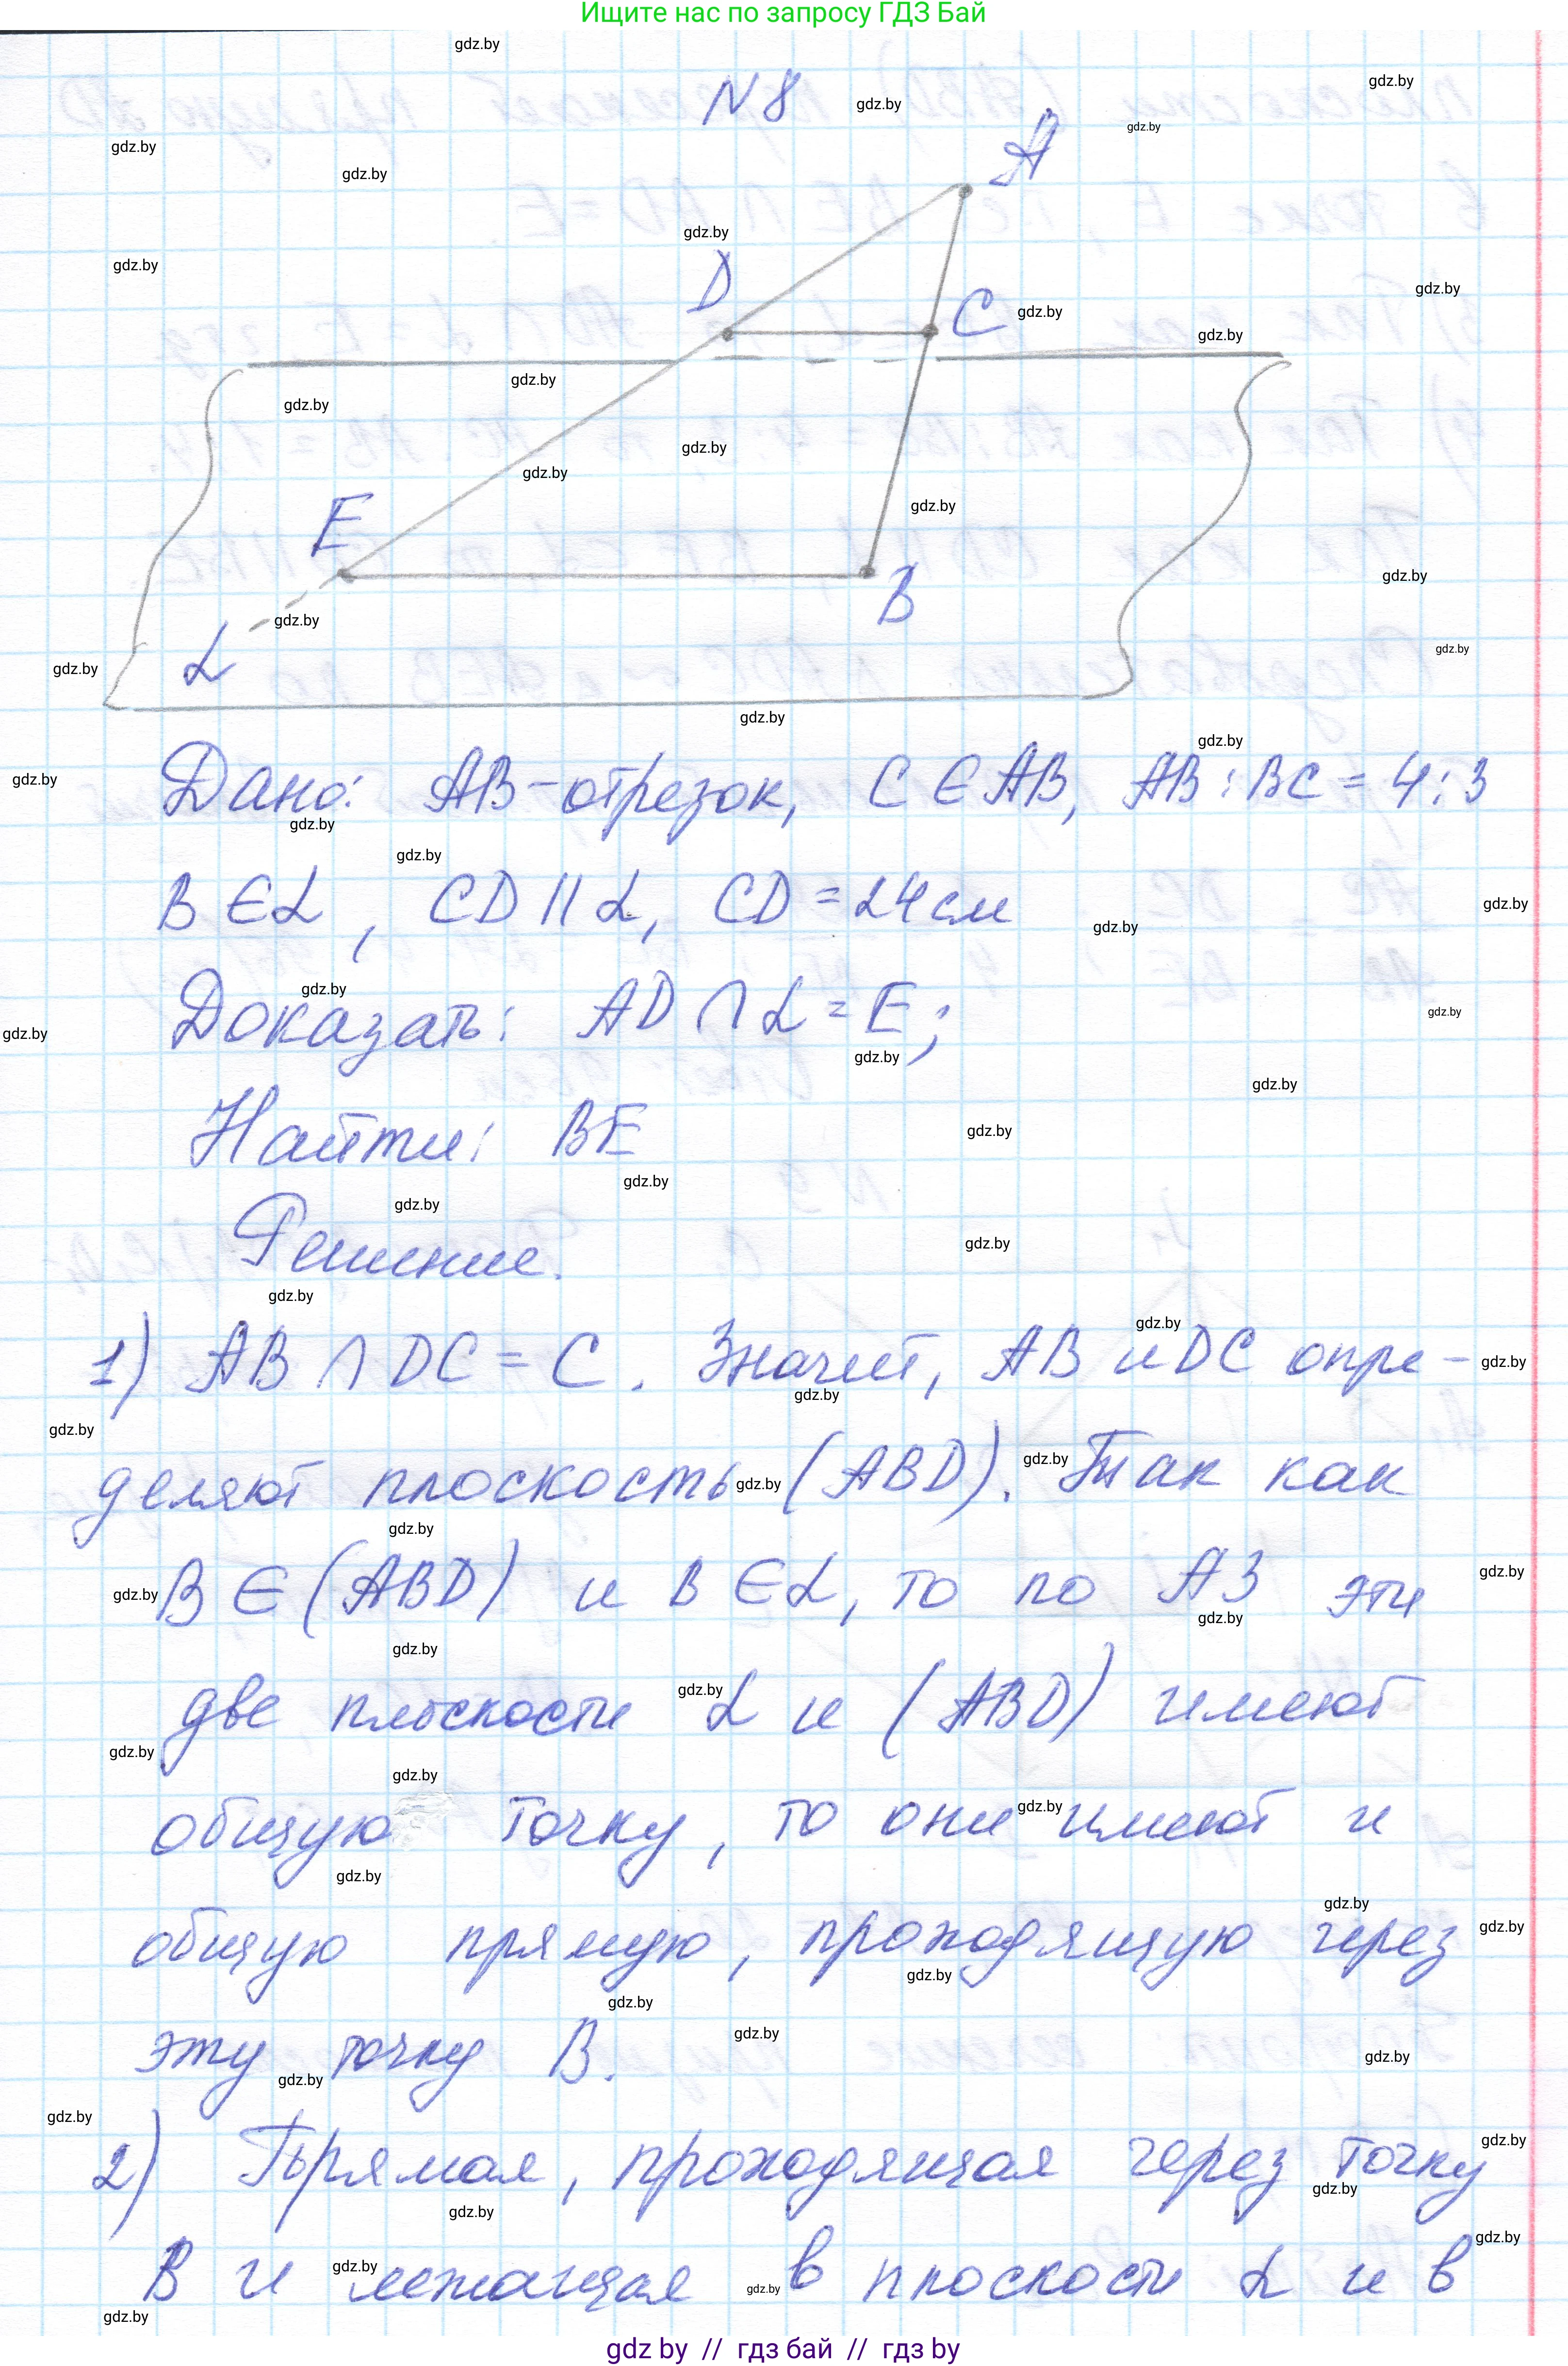 Ищите нас по запросу ГДЗ Бай
N 8
A
D
C
E
B
α
Дано: AB-отрезок, C ∈ AB, AB : BC = 4 : 3
B ∈ α, CD || α, CD = 24 см
Доказать: AD ∩ α = E;
Найти: BE
Решение.
1) AB ∩ DC = C. Значит, AB и DC опре-
деляют плоскость (ABD). Так как
B ∈ (ABD) и B ∈ α, то по A3 эти
две плоскости α и (ABD) имеют
общую точку, то они имеют и
общую прямую, проходящую через
эту точку B.
2) Прямая, проходящая через точку
B и лежащая в плоскости α и в
gdz by // гдз бай // гдз by
gdz.by